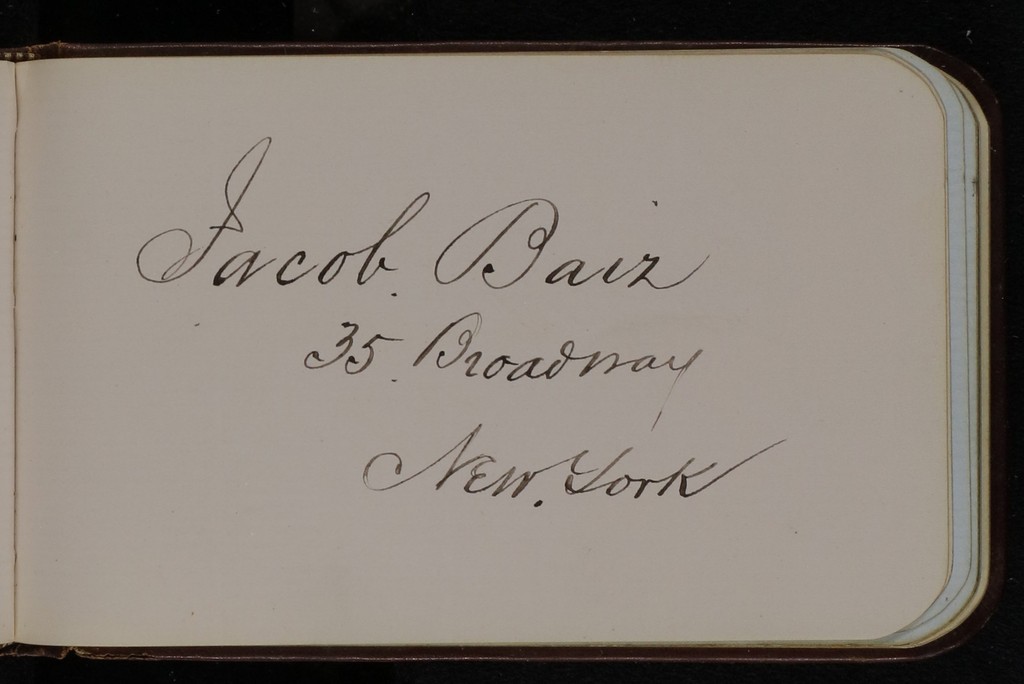 Jacob. Baiz
35. Broadway
New. York